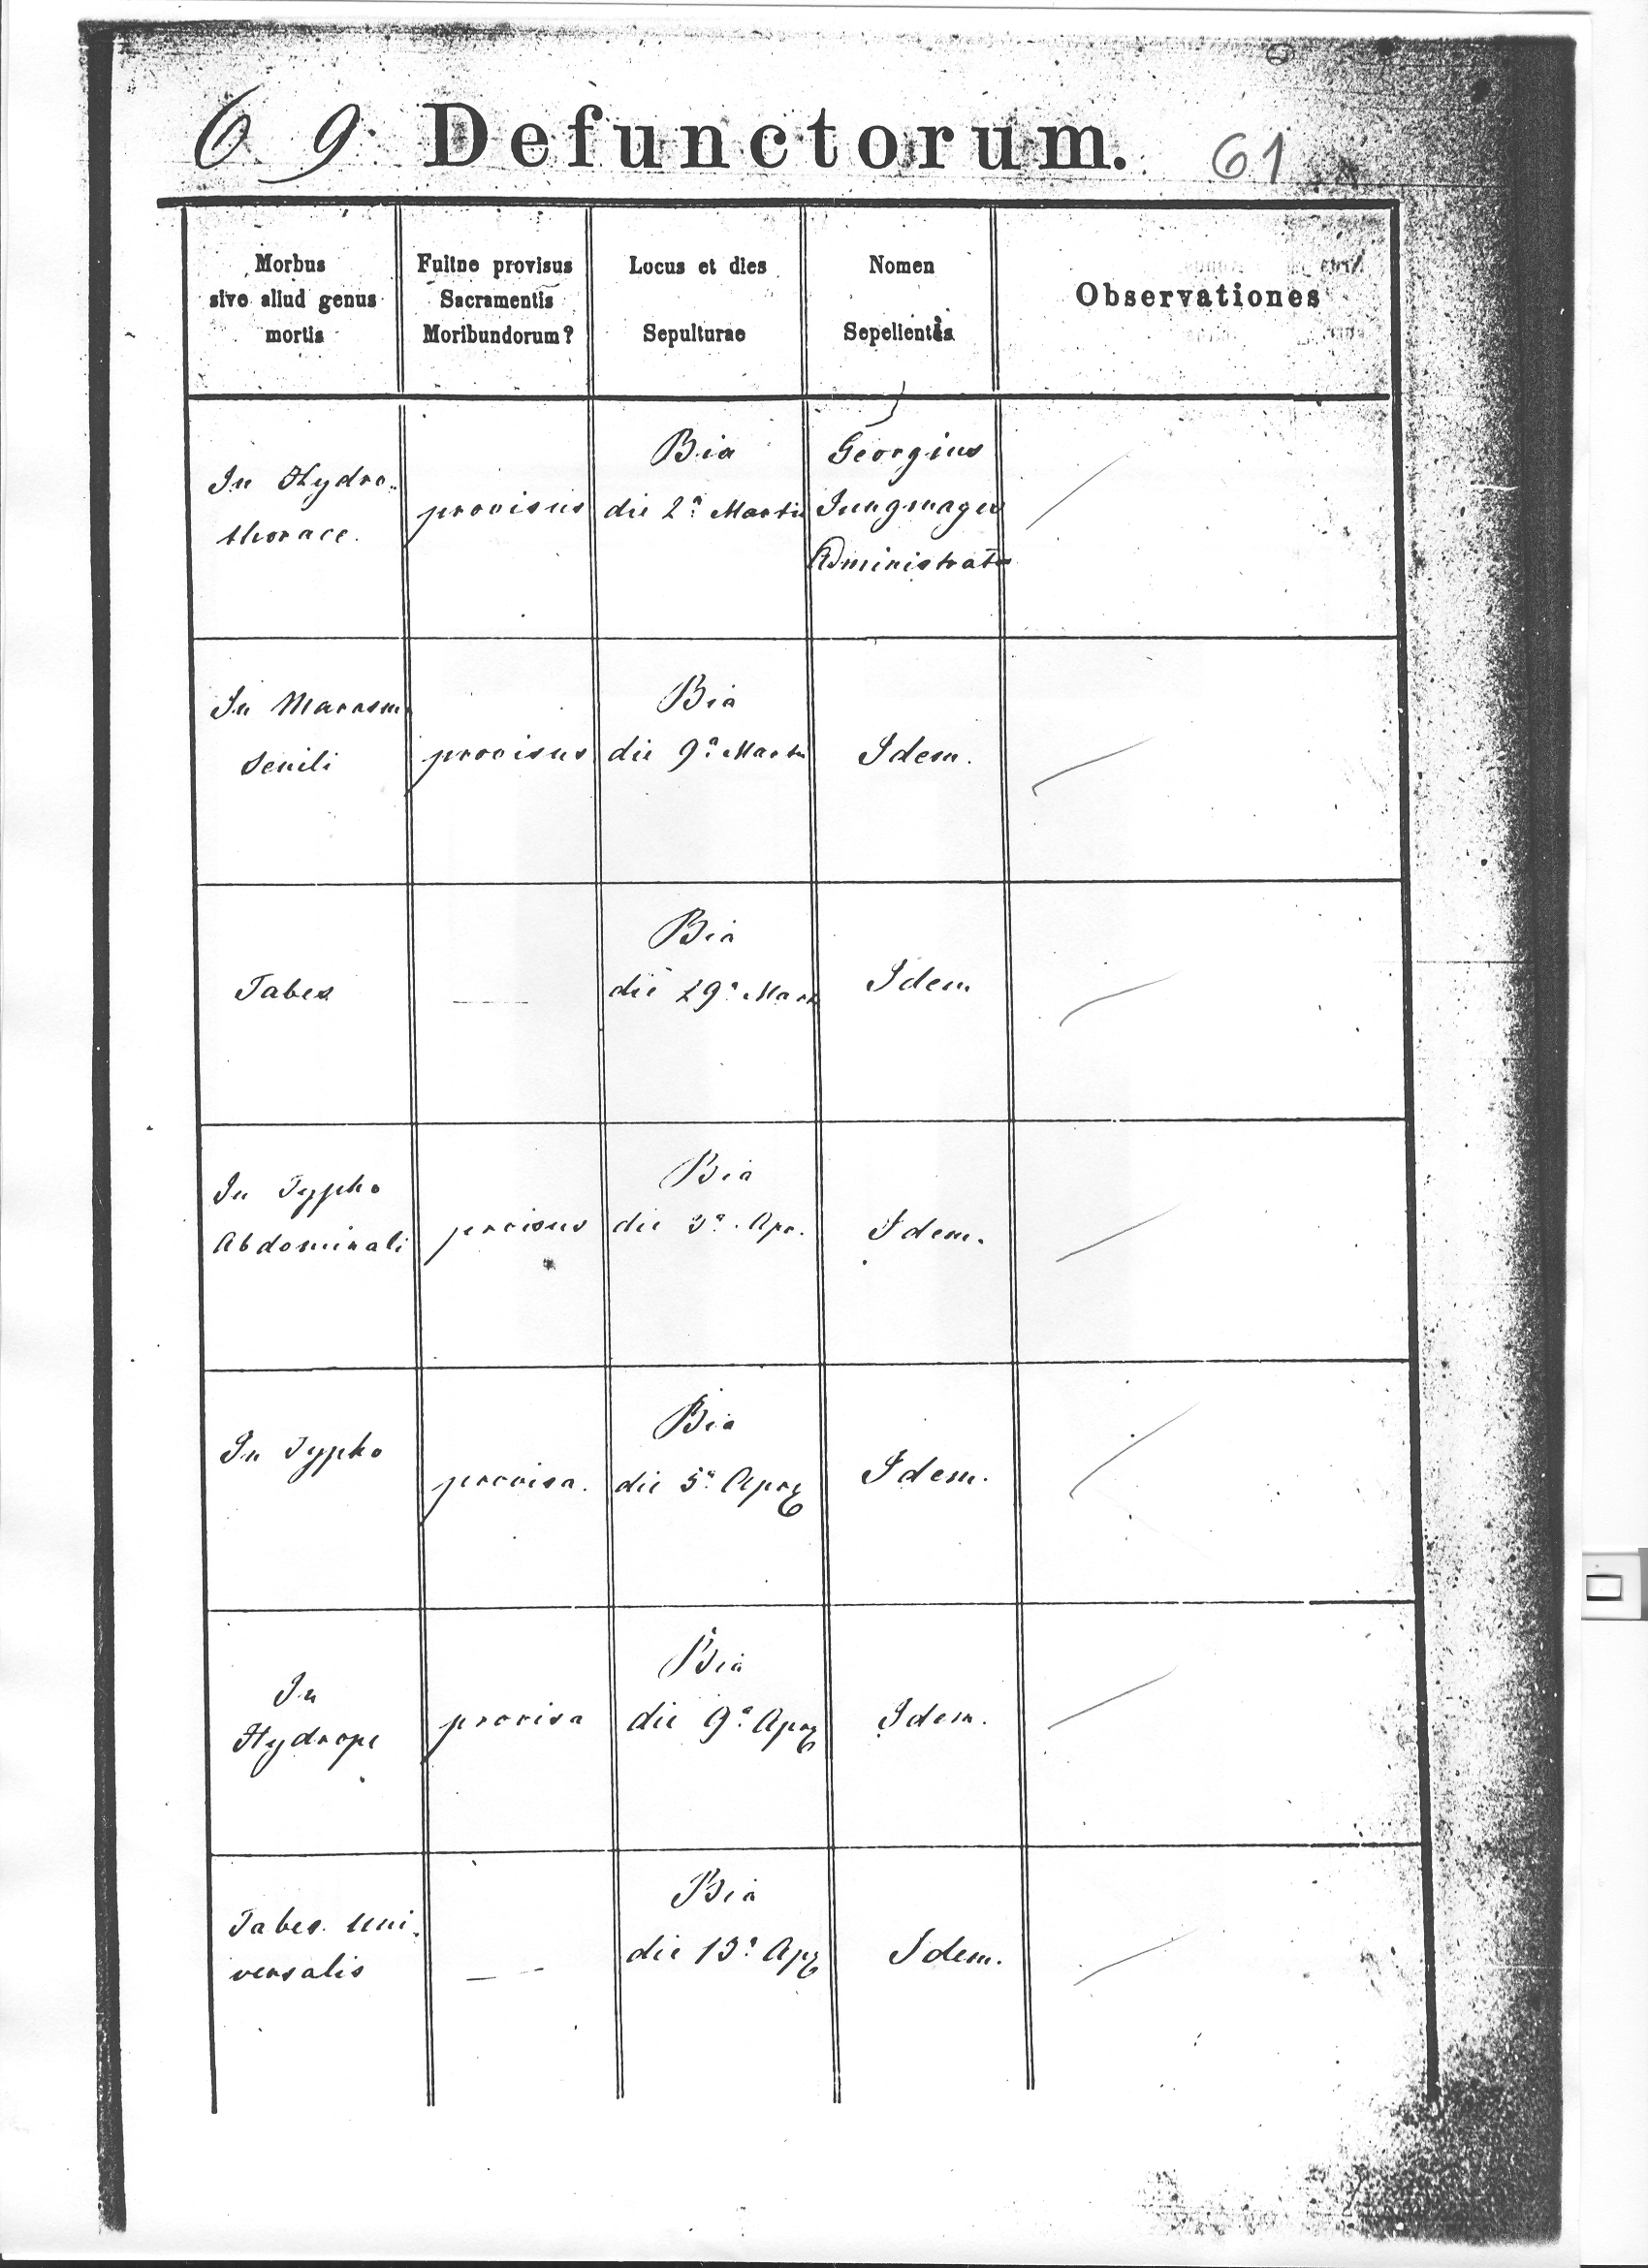 69. Defunctorum. 61
Morbus
sive aliud genus
mortis
Fuitne provisus
Sacramentis
Moribundorum?
Locus et dies
Sepulturae
Nomen
Sepelientis
Observationes
In Hydro-
thorace.
provisus
Bia
die 2a Martii
Georgius
Jungmayer
Administrator
In Marasm
Senili
provisus
Bia
die 9a Martii
Idem.
Tabes
Bia
die 29a Mart
Idem
In Typho
Abdominali
Bia
die 3a Apr.
Idem.
In Typho
provisa.
Bia
die 5a Apr
Idem.
In
Hydrope
provisa
Bia
die 9a Apr
Idem.
Tabes Uni-
versalis
Bia
die 13a Apr
Idem.